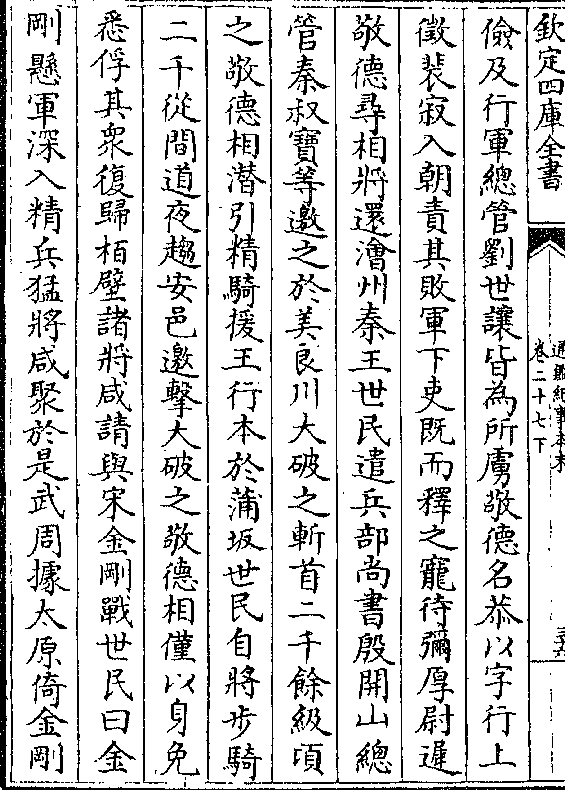 欽定四庫全書
通鑑紀事本末
卷二十七下
三六
儉及行軍總管劉世讓皆為所虜敬德名恭以字行上
徵裴寂入朝責其敗軍下吏既而釋之寵待彌厚尉遲
敬德尋相將還澮州秦王世民遣兵部尚書殷開山總
管秦叔寶等邀之於美良川大破之斬首二千餘級頃
之敬德相潛引精騎援王行本於蒲坂世民自將步騎
二千從間道夜趨安邑邀擊大破之敬德相僅以身免
悉俘其衆復歸栢壁諸將咸請與宋金剛戰世民曰金
剛懸軍深入精兵猛將咸聚於是武周據太原倚金剛